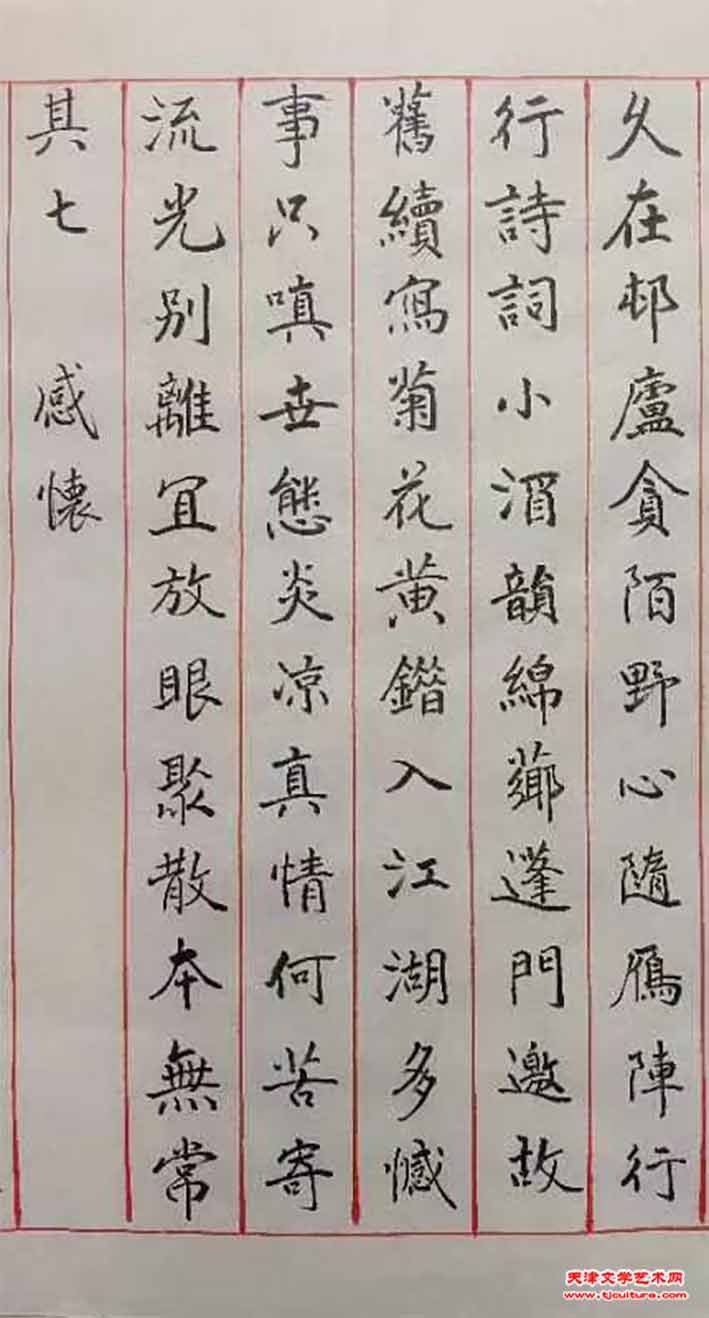 久在邨廬貪陌野心隨鴈陣行
行詩詞小酒韻綿薌蓬門邀故
舊續寫菊花黄錯入江湖多憾
事只嗔世態炎凉真情何苦寄
流光别離宜放眼聚散本無常
其七 感懷
天津文学艺术网
www.tjculture.com